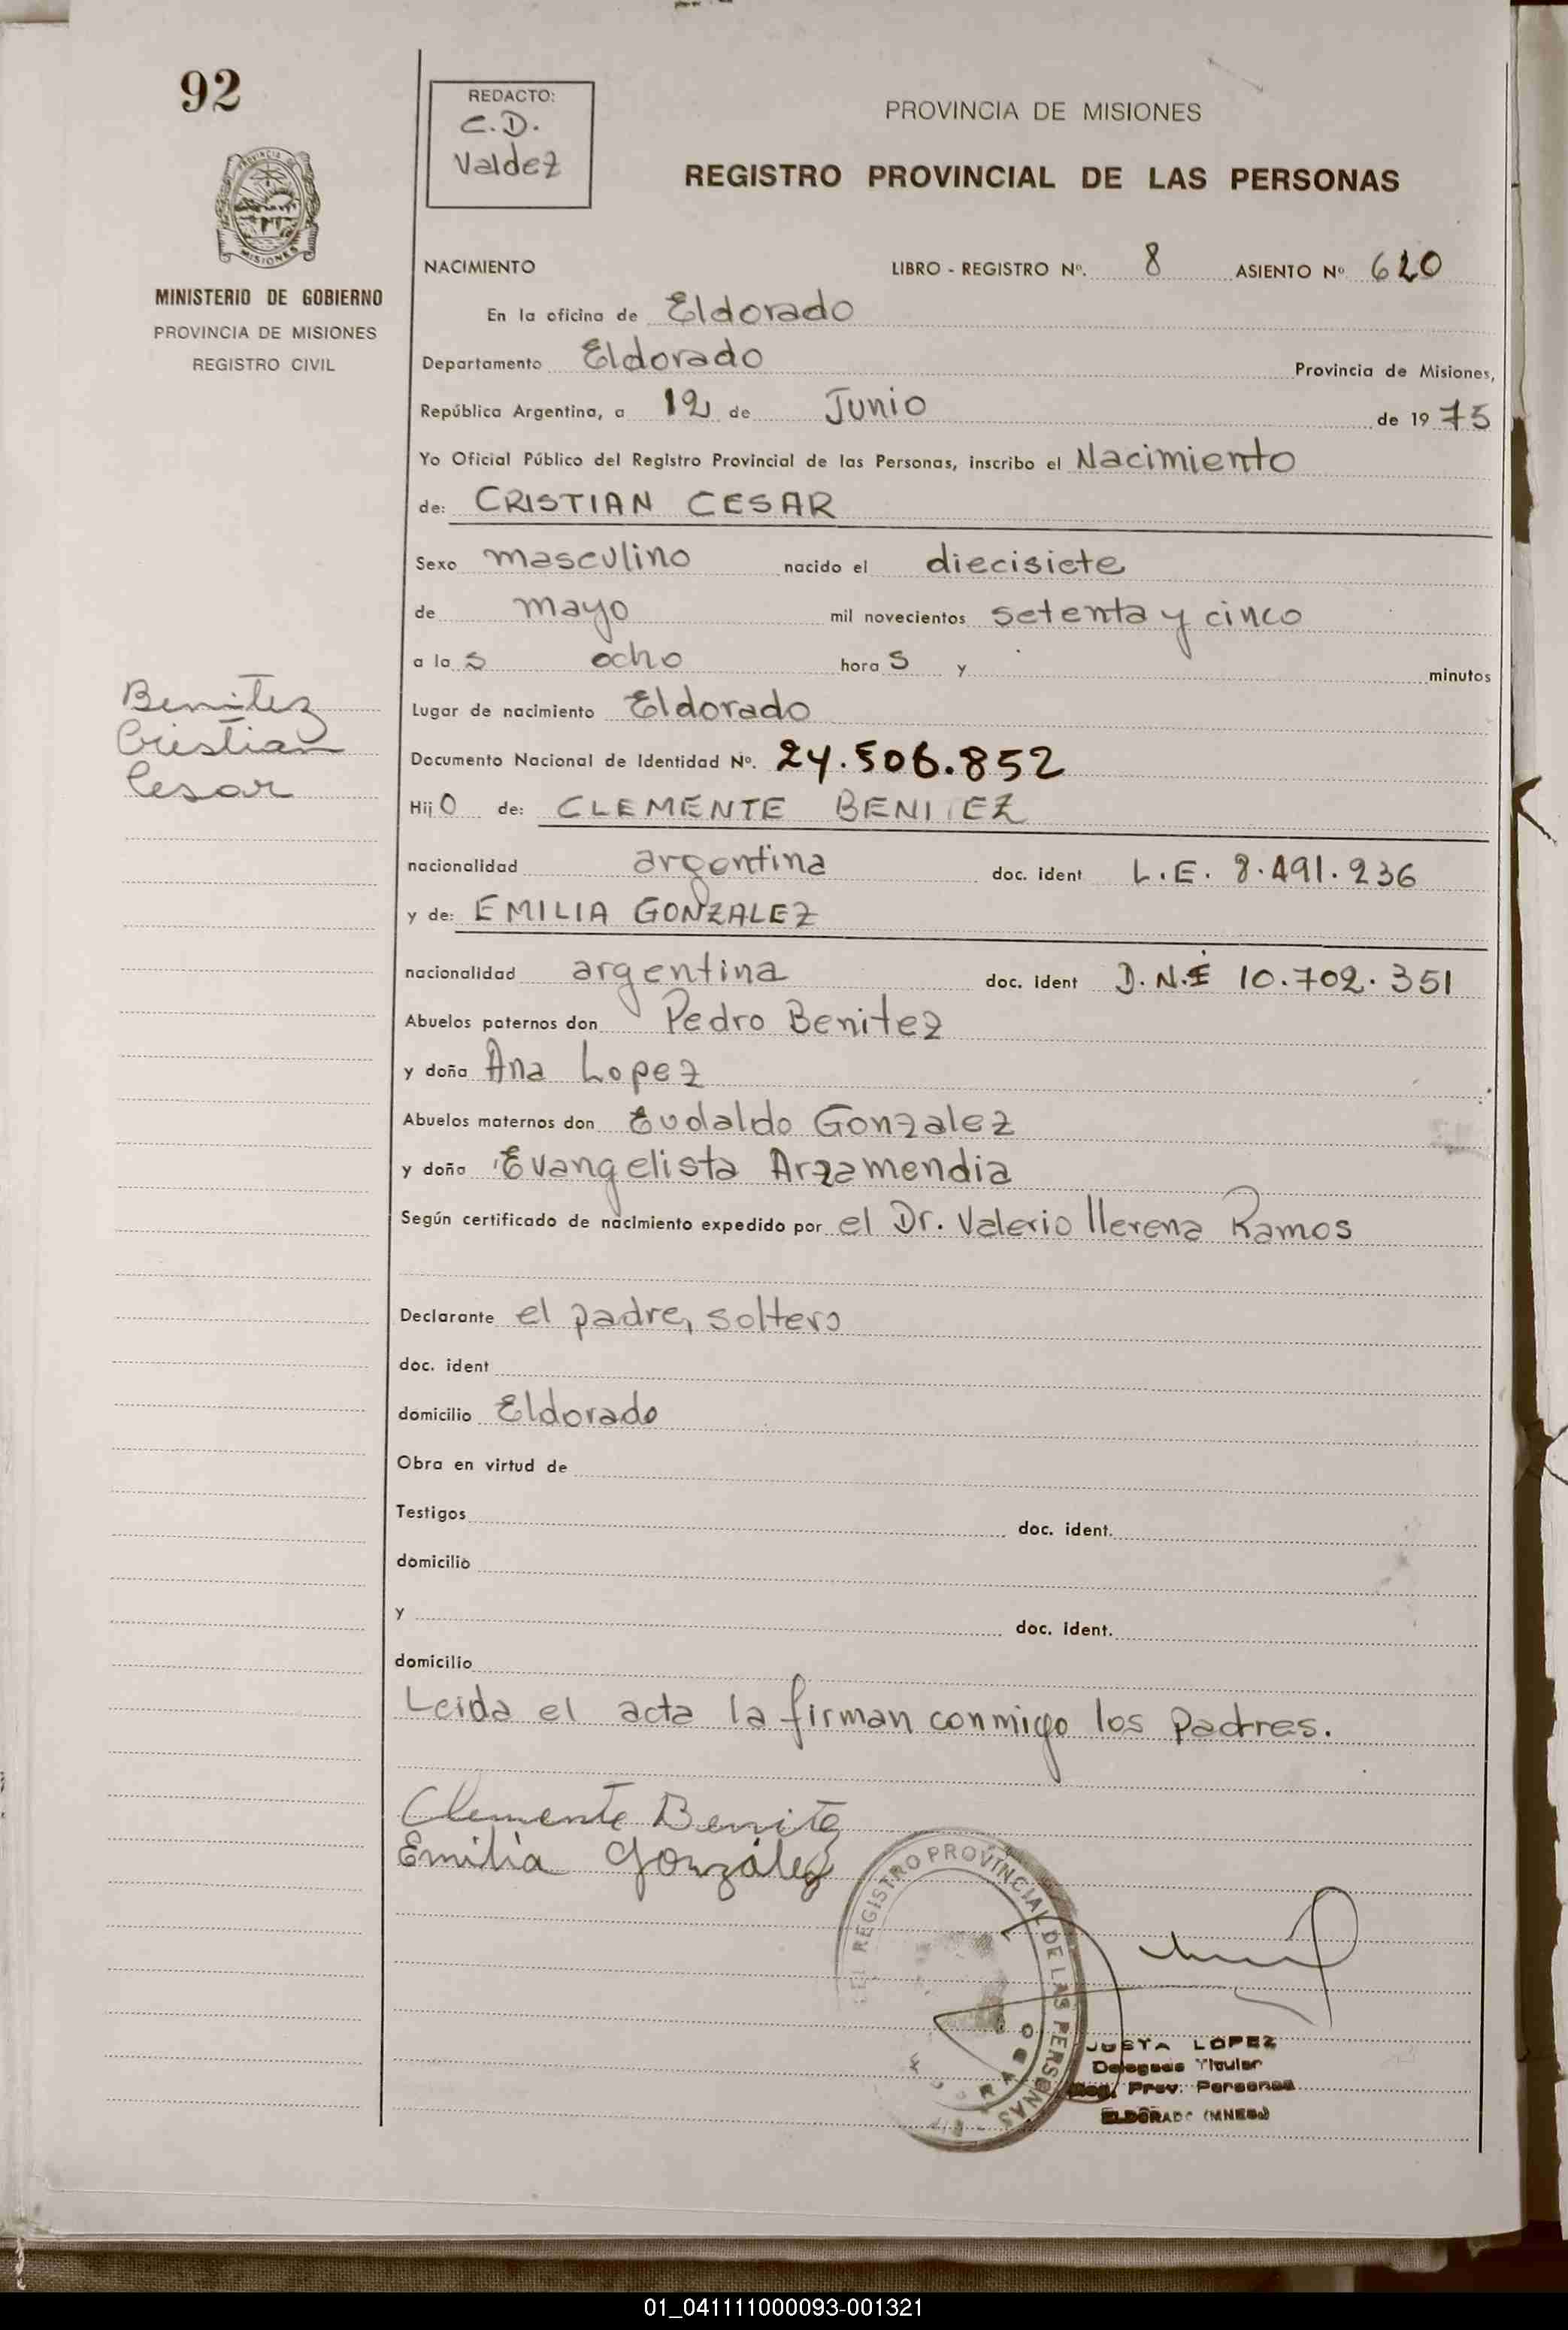 92
REDACTO:
C.D.
Valdez
PROVINCIA DE MISIONES
REGISTRO PROVINCIAL DE LAS PERSONAS
PROVINCIA DE
MISIONES
MINISTERIO DE GOBIERNO
PROVINCIA DE MISIONES
REGISTRO CIVIL
NACIMIENTO LIBRO - REGISTRO Nº. 8 ASIENTO Nº 620
En la oficina de Eldorado
Departamento Eldorado Provincia de Misiones,
República Argentina, a 12 de Junio de 1975
Yo Oficial Público del Registro Provincial de las Personas, inscribo el Nacimiento
de: CRISTIAN CESAR
Sexo masculino nacido el diecisiete
de mayo mil novecientos setenta y cinco
a las ocho horas y minutos
Benitez
Cristian
Cesar
Lugar de nacimiento Eldorado
Documento Nacional de Identidad Nº. 24.506.852
Hijo de: CLEMENTE BENITEZ
nacionalidad argentina doc. ident L.E. 8.491.236
y de: EMILIA GONZALEZ
nacionalidad argentina doc. ident D.N.I 10.702.351
Abuelos paternos don Pedro Benitez
y doña Ana Lopez
Abuelos maternos don Eudaldo Gonzalez
y doña Evangelista Arzamendia
Según certificado de nacimiento expedido por el Dr. Valerio llerena Ramos
Declarante el padre, soltero
doc. ident
domicilio Eldorado
Obra en virtud de
Testigos doc. ident.
domicilio
y doc. ident.
domicilio
Leida el acta la firman conmigo los padres.
Clemente Benitez
Emilia González
REGISTRO PROVINCIAL DE LAS PERSONAS
JUSTA LOPEZ
Delegada Titular
Reg. Prov. Personas
ELDORADO (MNES.)
01_041111000093-001321